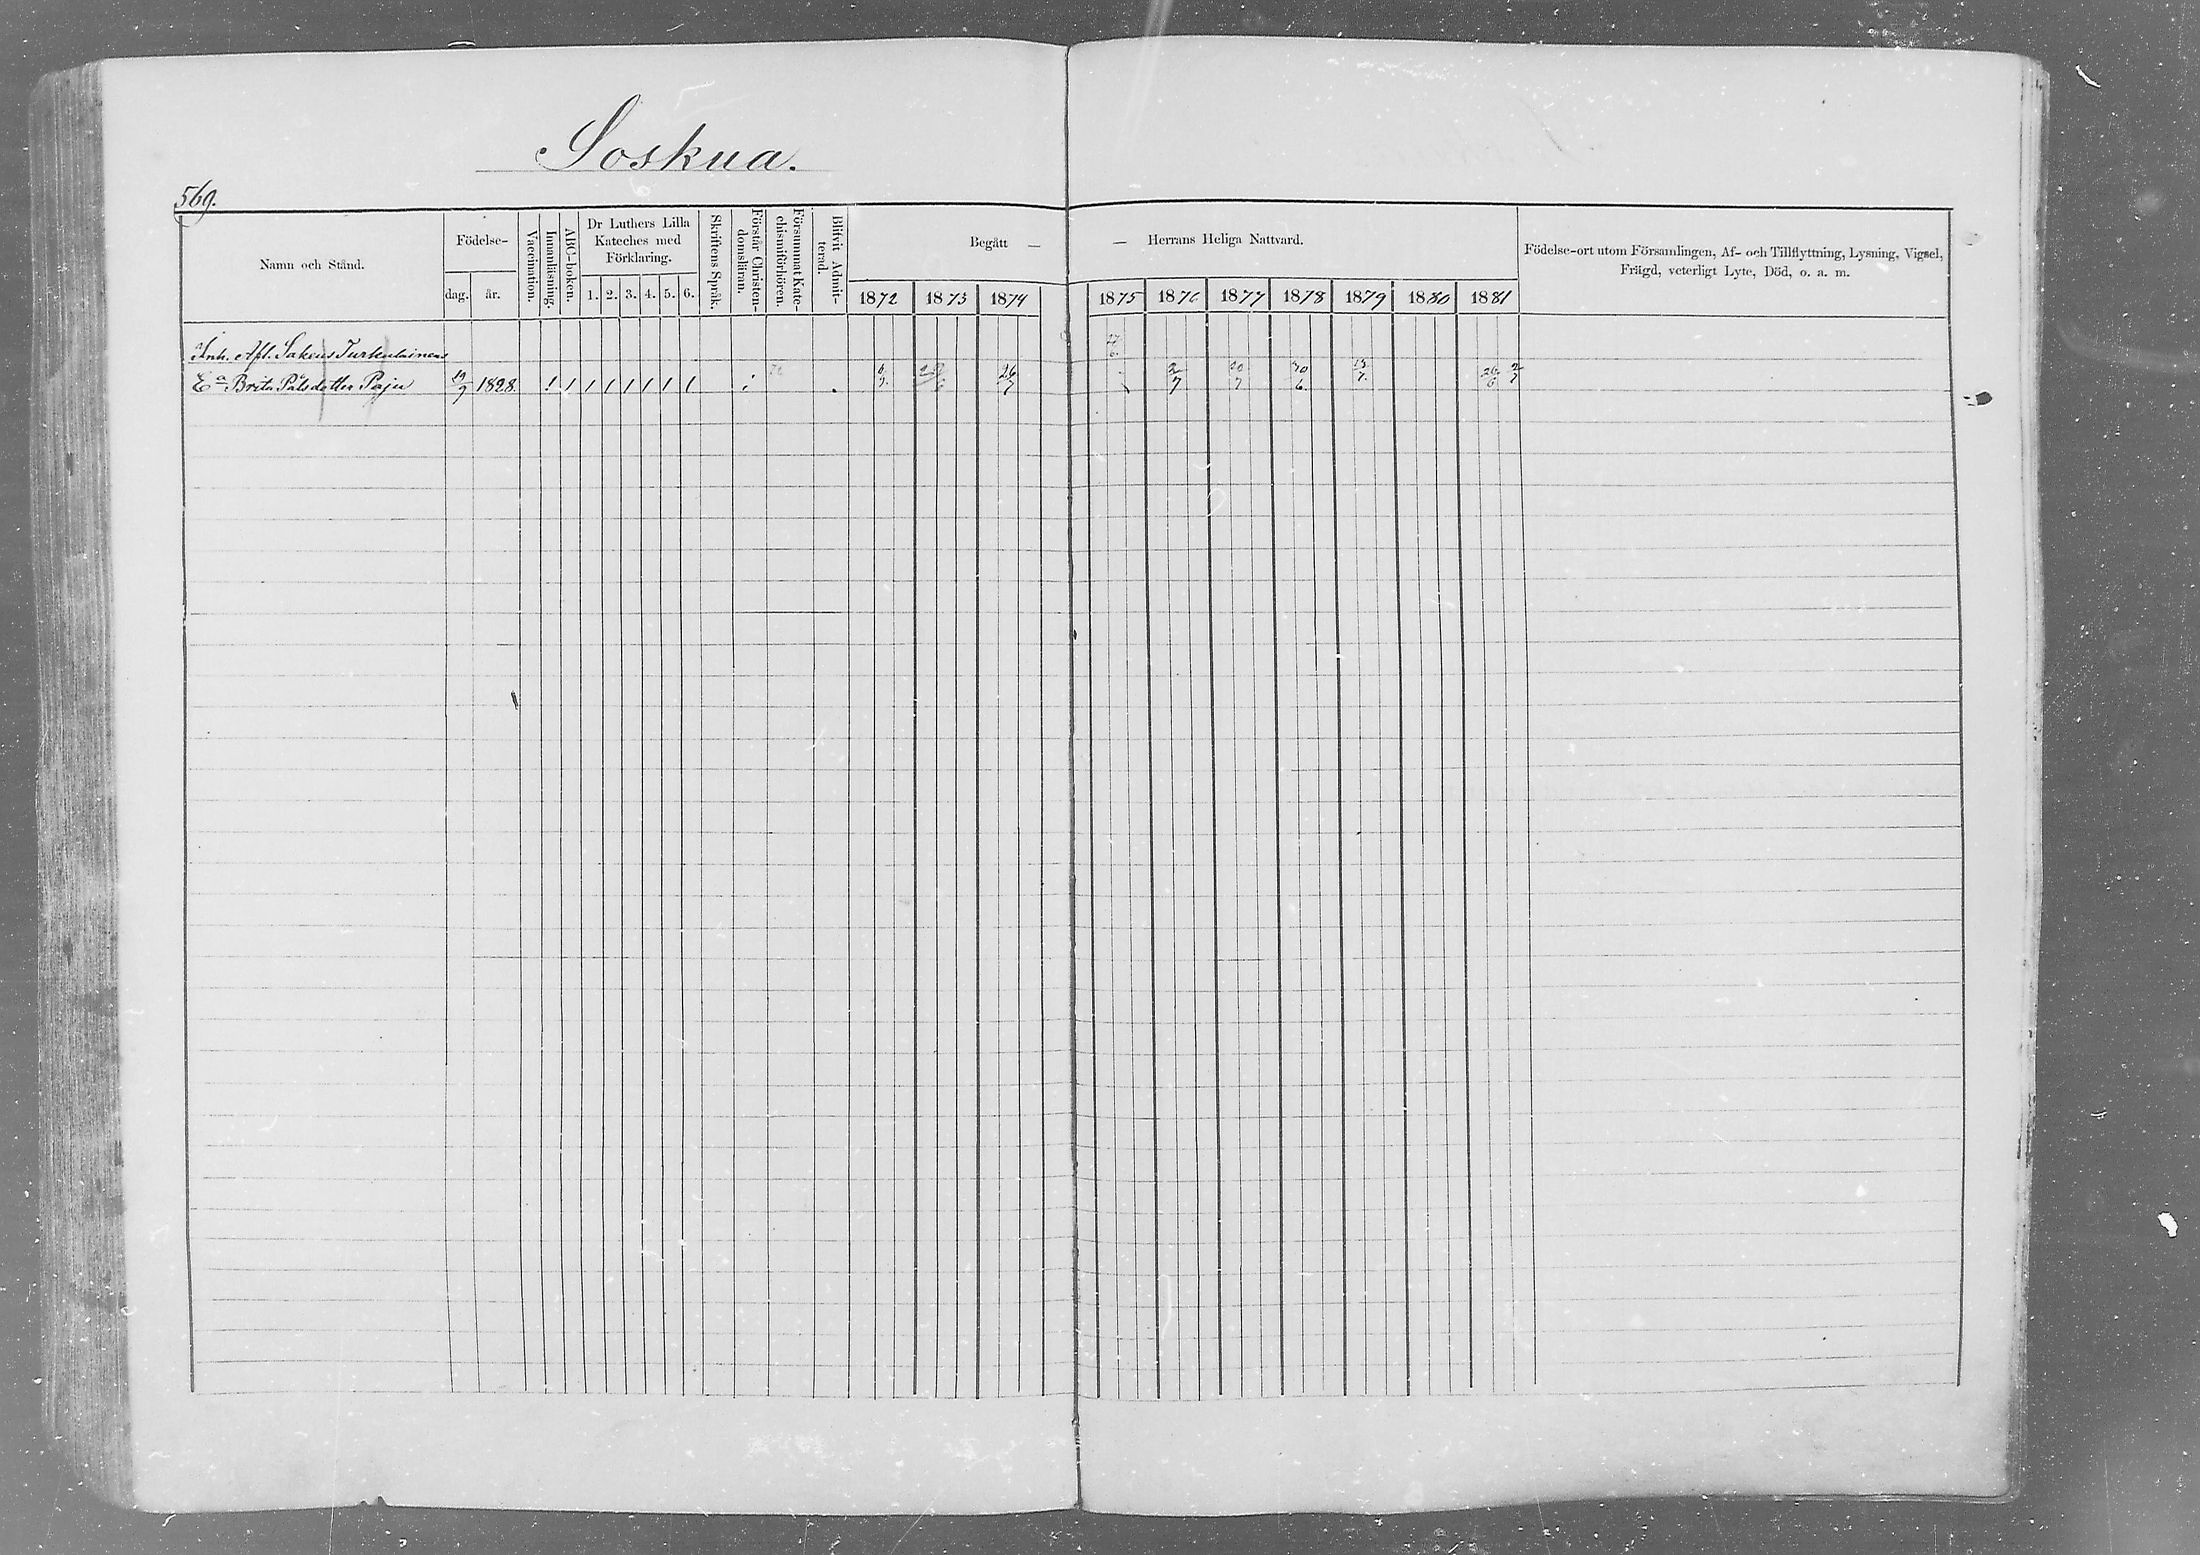 Soskua.
569.
Namn och Stånd.
Födelse-
dag. år.
Vaccination.
Innanläsning.
ABC-boken.
Dr Luthers Lilla
Kateches med
Förklaring.
1. 2. 3. 4. 5. 6.
Skriftens Språk.
Förstår Christen-
domsläran.
Försummat Kate-
chismiförhören.
Blifvit Admit-
terad.
Begått — — Herrans Heliga Nattvard.
1872 1873 1874 1875 1876 1877 1878 1879 1880 1881
Födelse-ort utom Församlingen, Af- och Tillflyttning, Lysning, Vigsel,
Frägd, veterligt Lyte, Död, o. a. m.
Inh. Afl. Sakeus Turkulainens
27/6.
Ea Brita Pålsdotter Paju 19/9 1828. 26/7 2/7 20/7 30/6. 13/7. 26/6 2/7